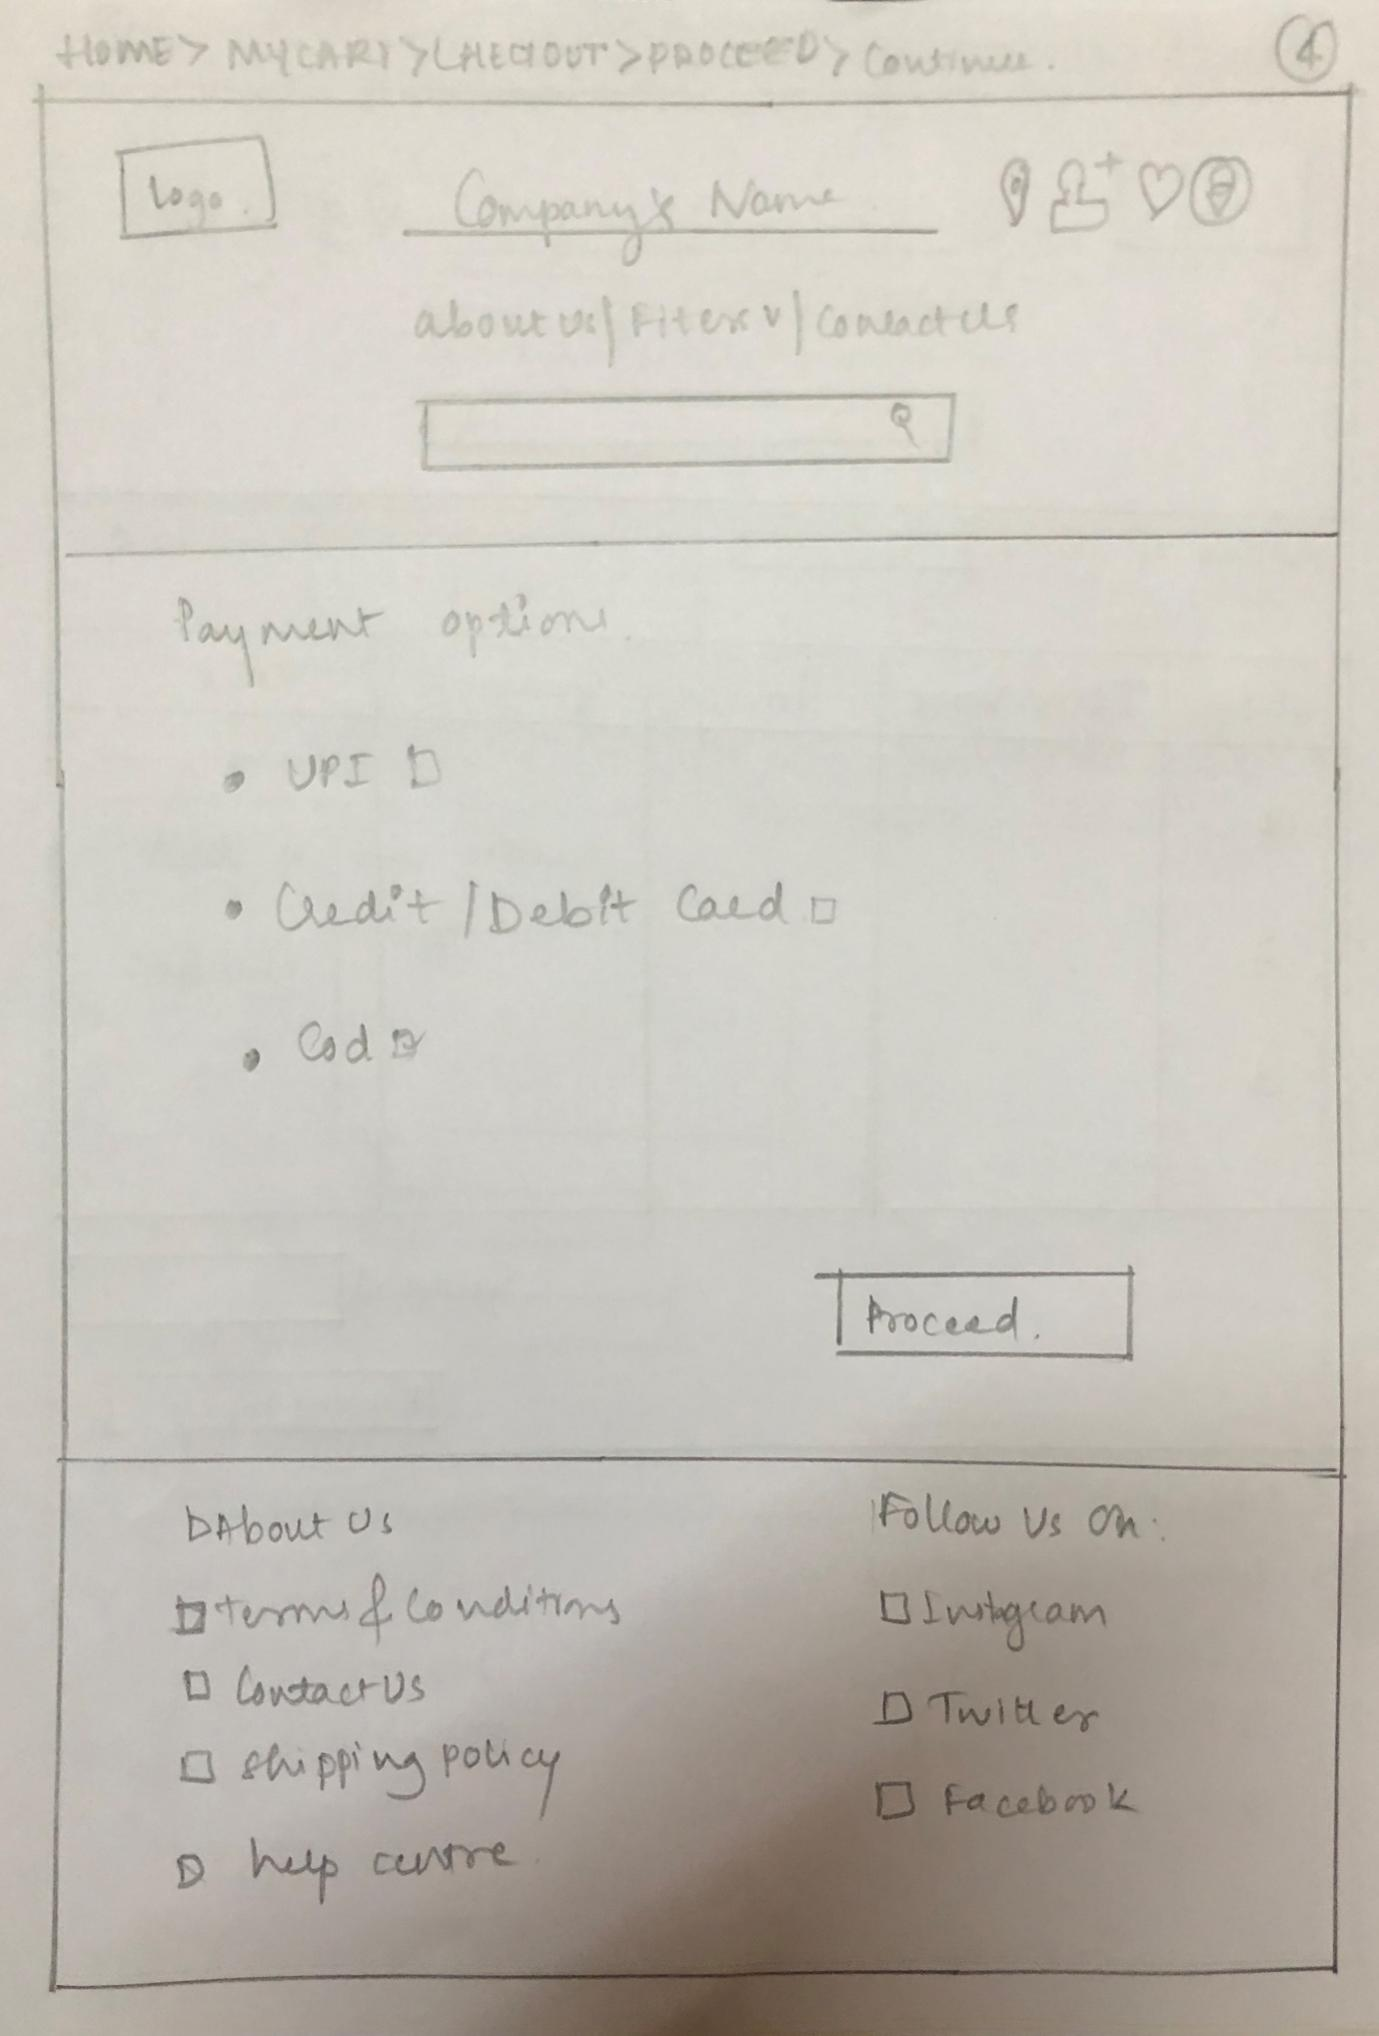 HOME > MYCART > CHECKOUT > PROCEED > Continue.
4
Logo.
Company's Name
about us / Fiters v / Contact Us
Payment options.
• UPI
• Credit / Debit Card
• Cod
Proceed.
About Us
Terms & Conditions
Contact Us
Shipping policy
help centre
Follow Us On:
Instagram
Twitter
Facebook